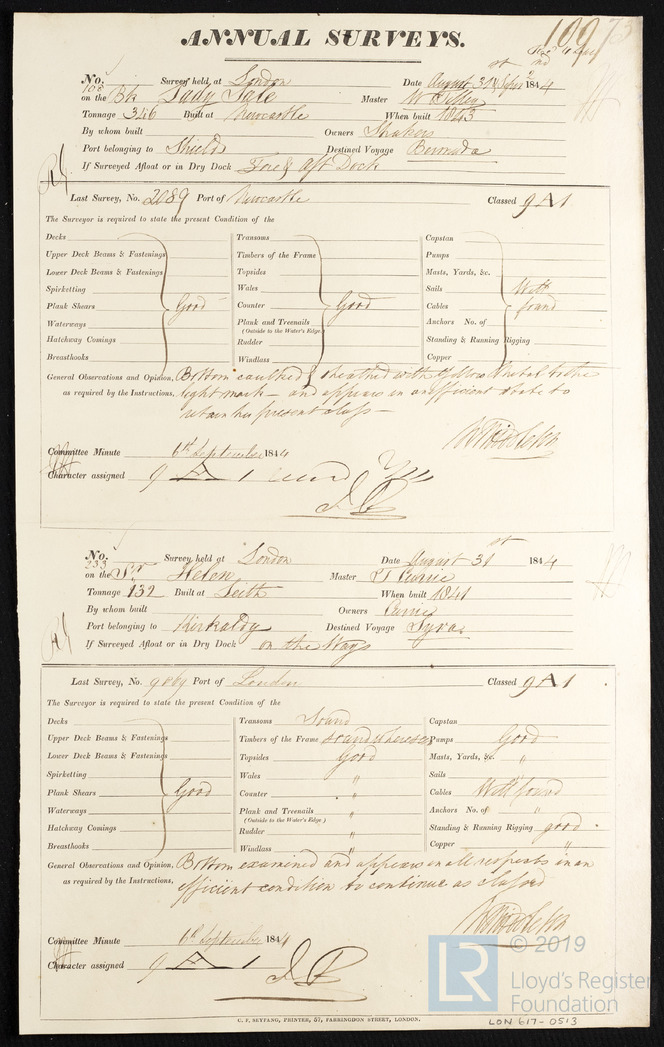 ANNUAL SURVEYS.
No. 108 Survey held at London Date August 31st & Septr 2nd 1844
on the Bk Lady Sale Master
Tonnage 346 Built at Newcastle When built 1843
By whom built Owners
Port belonging to Shields Destined Voyage Bermuda
If Surveyed Afloat or in Dry Dock Fore & Aft Dock
Last Survey, No. 2089 Port of Newcastle Classed 9 A 1
The Surveyor is required to state the present Condition of the
Decks Transoms Capstan
Upper Deck Beams & Fastenings Timbers of the Frame Pumps
Lower Deck Beams & Fastenings Topsides Masts, Yards, &c.
Spirketting Wales Sails Well
Plank Shears Good Counter Good Cables found
Waterways Plank and Treenails Anchors No. of
(Outside to the Water's Edge)
Hatchway Comings Rudder Standing & Running Rigging
Breasthooks Windlass Copper
General Observations and Opinion, Bottom caulked & sheathed with Yellow Metal to the
as required by the Instructions, light mark – and appears in an efficient state to
retain her present class –
Committee Minute 6th September 1844
Character assigned 9 A 1
No. 233 Survey held at London Date August 31st 1844
on the Sr Helen Master Currie
Tonnage 132 Built at Leith When built 1841
By whom built Owners Currie
Port belonging to Kirkaldy Destined Voyage Syra
If Surveyed Afloat or in Dry Dock on the Ways
Last Survey, No. 9069 Port of London Classed 9 A 1
The Surveyor is required to state the present Condition of the
Decks Transoms Sound Capstan
Upper Deck Beams & Fastenings Timbers of the Frame sound where seen Pumps Good
Lower Deck Beams & Fastenings Topsides Good Masts, Yards, &c. "
Spirketting Wales " Sails
Plank Shears Good Counter " Cables Well found
Waterways Plank and Treenails " Anchors No. of "
(Outside to the Water's Edge)
Hatchway Comings Rudder " Standing & Running Rigging good
Breasthooks Windlass " Copper "
General Observations and Opinion, Bottom examined and appears in all respects in an
as required by the Instructions, efficient condition to continue as classed
Committee Minute 6th September 1844
Character assigned 9 A 1
C. F. SEYFANG, PRINTER, 57, FARRINGDON STREET, LONDON.
LON 617-0513
LR © 2019
Lloyd's Register
Foundation